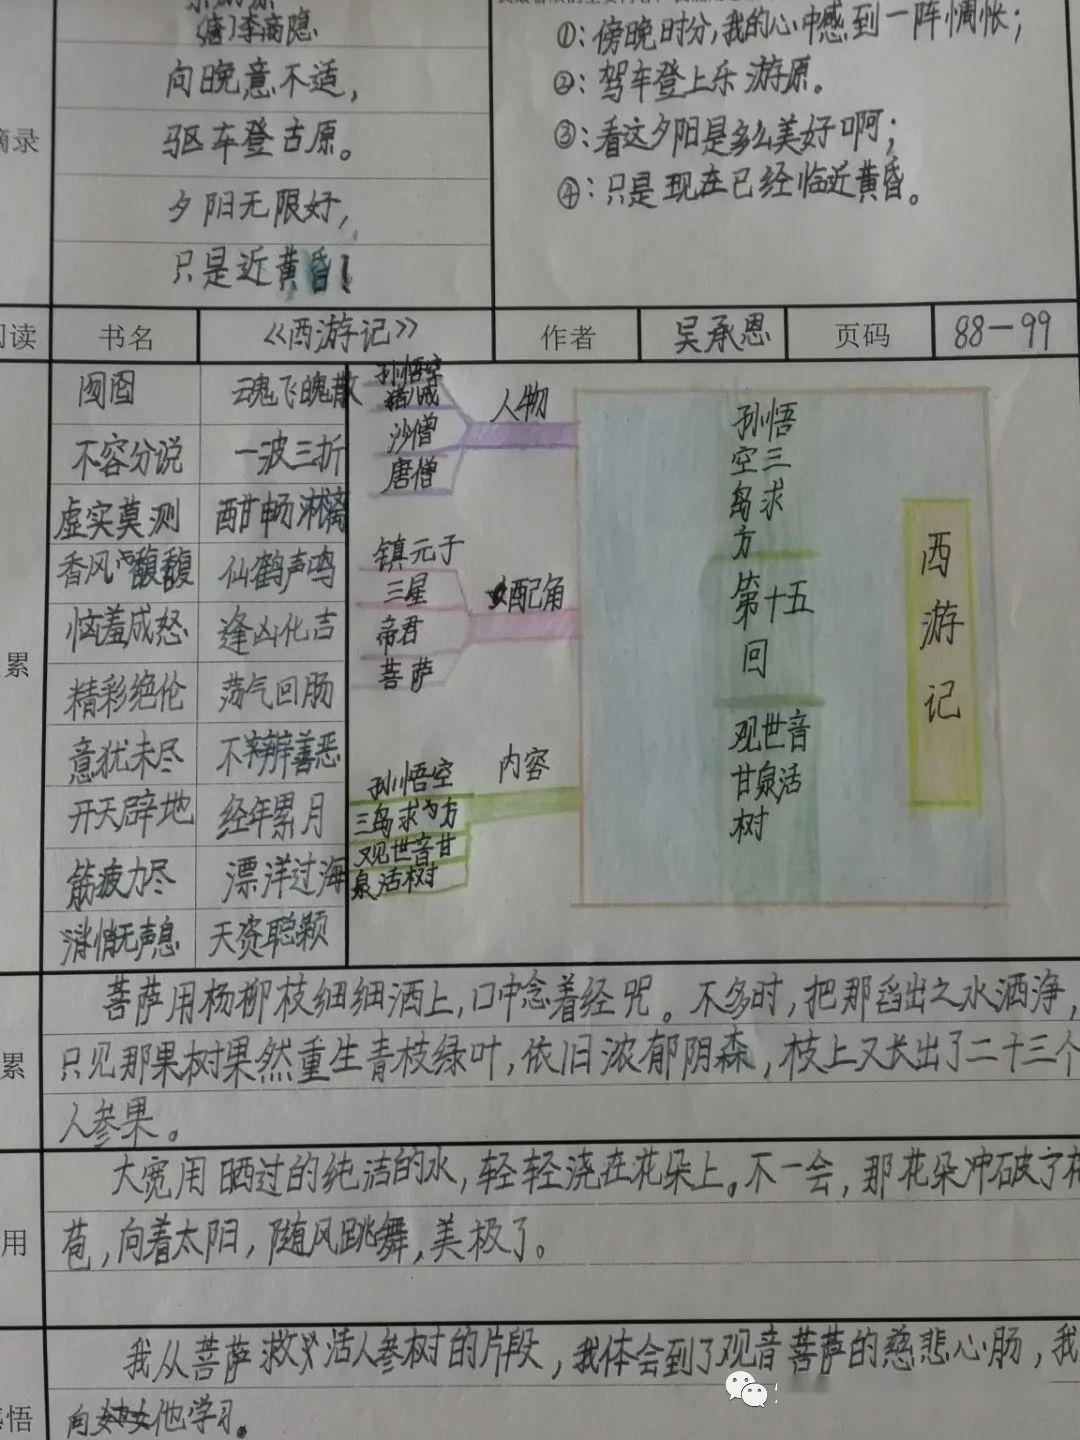 (唐)李商隐
向晚意不适，
驱车登古原。
夕阳无限好，
只是近黄昏！
摘录
①：傍晚时分，我的心中感到一阵惆怅；
②：驾车登上乐游原。
③：看这夕阳是多么美好啊；
④：只是现在已经临近黄昏。
阅读 书名 《西游记》 作者 吴承恩 页码 88—99
囫囵 魂飞魄散
不容分说 一波三折
虚实莫测 酣畅淋漓
香风馥馥 仙鹤声鸣
恼羞成怒 逢凶化吉
精彩绝伦 荡气回肠
意犹未尽 不辩善恶
开天辟地 经年累月
筋疲力尽 漂洋过海
消悄无声息 天资聪颖
累
孙悟空
猪八戒
沙僧
唐僧
人物
镇元子
三星
帝君
菩萨
配角
孙悟空
三岛求方
观世音甘
泉活树
内容
孙悟
空三
岛求
方
第十五
回
观世音
甘泉活
树
西
游
记
累
菩萨用杨柳枝细细洒上，口中念着经咒。不多时，把那舀出之水洒净，
只见那果树果然重生青枝绿叶，依旧浓郁阴森，枝上又长出了二十三个
人参果。
用
大宽用晒过的纯洁的水，轻轻浇在花朵上。不一会，那花朵冲破了花
苞，向着太阳，随风跳舞，美极了。
我从菩萨救活人参树的片段，我体会到了观音菩萨的慈悲心肠，我
向他学习。
悟